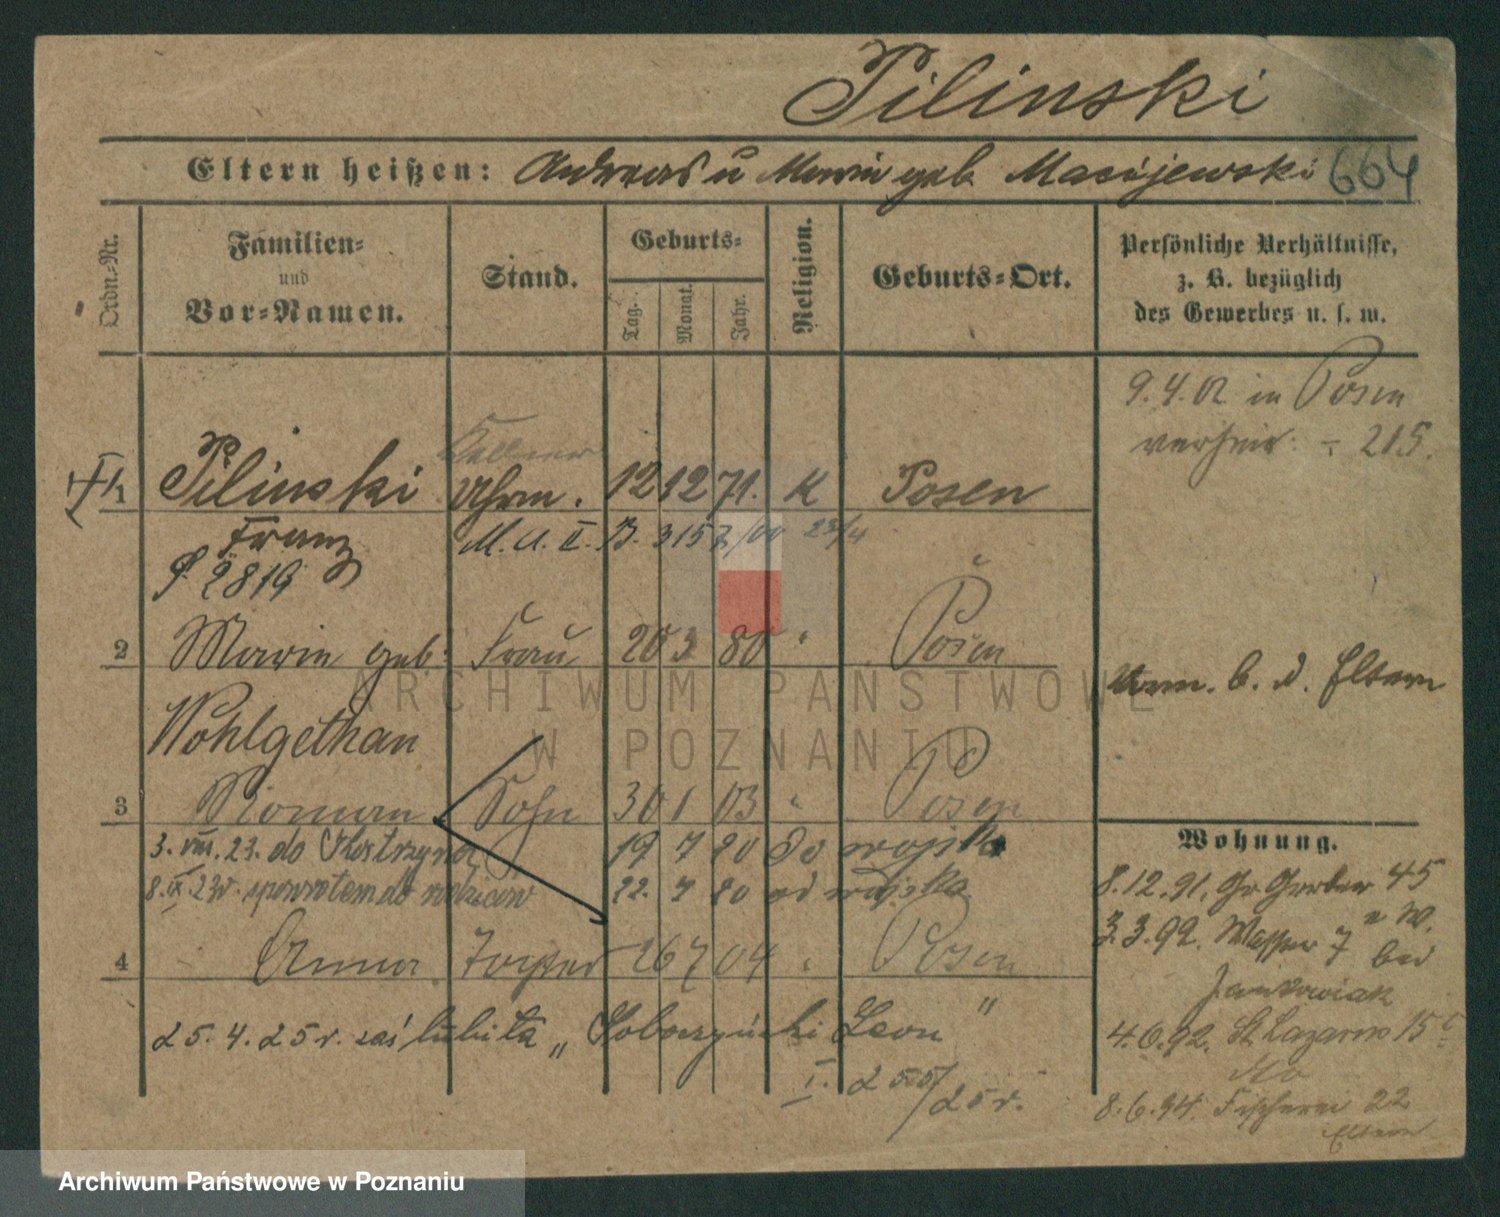 Pilinski
Eltern heißen: Andreas u Marie geb. Maciejewski 664
Ordn.-Nr.
Familien- und Vor-Namen.
Stand.
Geburts-
Tag. Monat. Jahr.
Religion.
Geburts-Ort.
Persönliche Verhältnisse,
z. B. bezüglich
des Gewerbes u. s. w.
9.4.02 in Posen
verheir. - 215.
1 Pilinski Kellner Uhrm. 12 12 71. K Posen
Franz M. A. II. B. 3157/00 23/4
P 2819
2 Marie geb. Frau 20 3 80 " Posen
Wohlgethan
b. d. Eltern
3 Roman Sohn 30 1 03 " Posen
3. VIII. 23. do Kostrzyna 19 7 20 do wojska
8. IX. 23r. spowrotem do rodziców 22. 7 20 od wojska
4 Anna Tochter 26 7 04 " Posen
25. 4. 25 r. zaślubiła „Leon"
I. 25 5/25 r.
Wohnung.
8.12.91. Gr Gerber 45
3.3.92. Wasser 7 n W.
bei
Jankowiak
4.6.92. St Lazarus 15
8.6.94. Fischerei 22
Eltern
ARCHIWUM PAŃSTWOWE
W POZNANIU
Archiwum Państwowe w Poznaniu